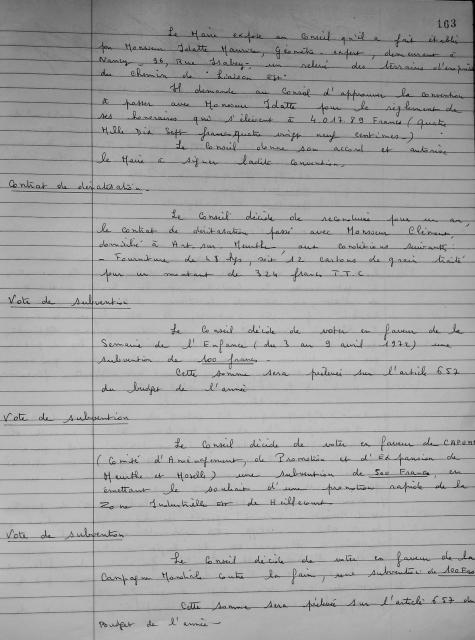 163
Le Maire expose au Conseil qu'il a fait établir
par Monsieur Idatte Maurice, Géomètre-expert, demeurant à
Nancy - 36, Rue Isabey - un relevé des terrains d'emprise
du Chemin de "Liaison Est"
Il demande au Conseil d'approuver la convention
à passer avec Monsieur Idatte pour le règlement de
ses honoraires qui s'élèvent à 4.017.89 Francs (Quatre
Mille Dix Sept francs Quatre vingt neuf centimes.-)
Le Conseil donne son accord et autorise
le Maire à signer ladite Convention.
Contrat de dératisation.
Le Conseil décide de reconduire pour un an,
le contrat de dératisation passé avec Monsieur Clément,
domicilié à Art sur Meurthe, aux conditions suivantes :
- Fourniture de 48 kgs, soit 12 cartons de grain traité
pour un montant de 324 francs T.T.C.
Vote de subvention
Le Conseil décide de voter en faveur de la
Semaine de l'Enfance (du 3 au 9 avril 1972) une
subvention de 100 francs -
Cette somme sera prélevée sur l'article 657
du budget de l'année
Vote de subvention
Le Conseil décide de voter en faveur de
(Comité d'Aménagement, de Promotion et d'Expansion de
Meurthe et Moselle) une subvention de 500 Francs, en
émettant le souhait d'une promotion rapide de la
Zone Industrielle Est de Heillecourt
Vote de subvention
Le Conseil décide de voter en faveur de la
Campagne Mondiale contre la faim, une subvention de 100 Frs
Cette somme sera prélevée sur l'article 657 du
Budget de l'année -